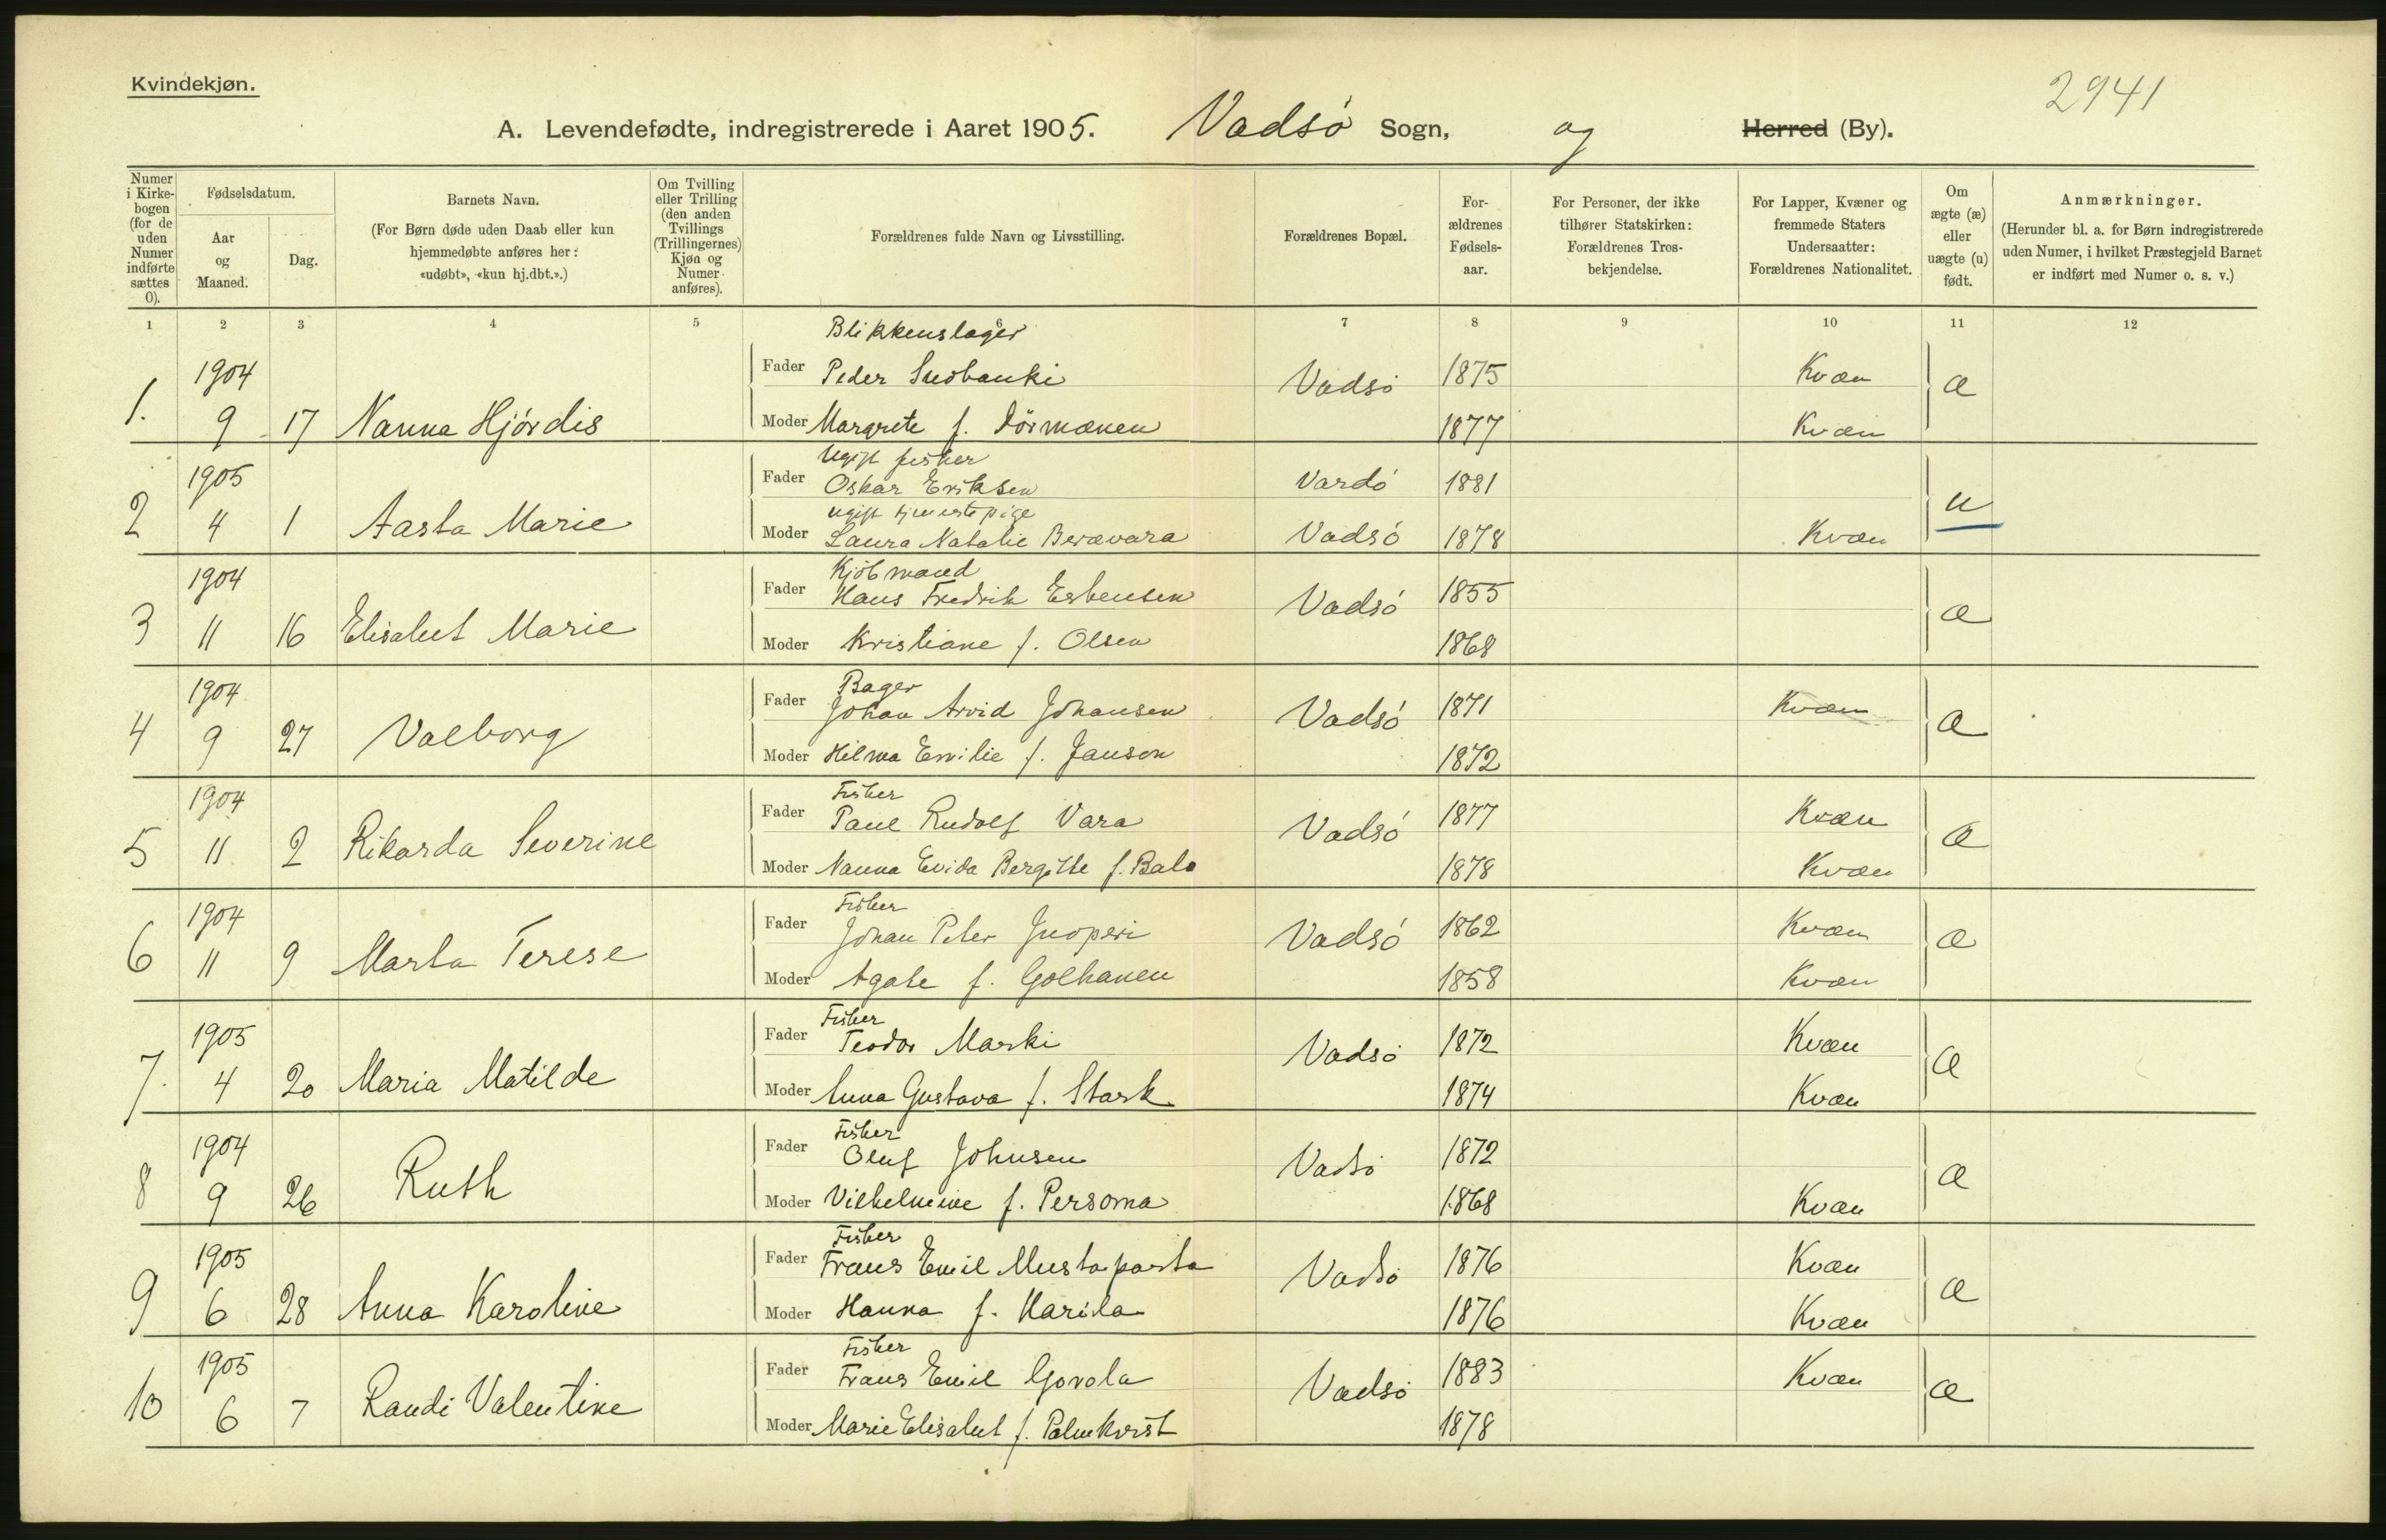 Kvindekjøn.
2941
A. Levendefødte, indregistrerede i Aaret 1905. Vadsö Sogn, og Herred (By).
Numer i Kirke-bogen (for de uden Numer indførte sættes 0).
Fødselsdatum.
Aar og Maaned.
Dag.
Barnets Navn.
(For Børn døde uden Daab eller kun hjemmedøbte anføres her: «udøbt», «kun hj.dbt.».)
Om Tvilling eller Trilling (den anden Tvillings (Trillingernes) Kjøn og Numer anføres).
Forældrenes fulde Navn og Livsstilling.
Forældrenes Bopæl.
For-ældrenes Fødsels-aar.
For Personer, der ikke tilhører Statskirken: Forældrenes Tros-bekjendelse.
For Lapper, Kvæner og fremmede Staters Undersaatter: Forældrenes Nationalitet.
Om ægte (æ) eller uægte (u) født.
Anmærkninger.
(Herunder bl. a. for Børn indregistrerede uden Numer, i hvilket Præstegjeld Barnet er indført med Numer o. s. v.)
1 2 3 4 5 6 7 8 9 10 11 12
Blikkenslager
1904 Fader Peder Vadsö 1875 Kvæn æ
1. 9 17 Nanna Hjördis Moder Margrete f. 1877 Kvæn
Ugift fisker
1905 Fader Oskar Eriksen Vardö 1881 u
ugift tjenestepige
2 4 1 Aasta Marie Moder Laura Natalie Beravara Vadsö 1878 Kvæn
Kjöbmand
1904 Fader Hans Fredrik Esbensen Vadsö 1855 æ
3 11 16 Elisabet Marie Moder Kristiane f. Olsen 1868
Bager
1904 Fader Johan Arvid Johansen Vadsö 1871 Kvæn æ
4 9 27 Valborg Moder Hilma Emilie f. Janson 1872
Fisker
1904 Fader Paul Rudolf Vara Vadsö 1877 Kvæn æ
5 11 2 Rikarda Severine Moder Nanna Evida Bergitte f. Bala 1878 Kvæn
Fisker
1904 Fader Johan Peter Vadsö 1862 Kvæn æ
6 11 9 Marta Terese Moder Agate f. 1858 Kvæn
Fisker
1905 Fader Teodor Marki Vadsö 1872 Kvæn æ
7. 4 20 Maria Matilde Moder Anna Gustava f. Stark 1874 Kvæn
Fisker
1904 Fader Oluf Johnsen Vadsö 1872 æ
8 9 26 Ruth Moder Vilhelmine f. Persoma 1868 Kvæn
Fisker
1905 Fader Frans Emil Mustaparta Vadsö 1876 Kvæn æ
9 6 28 Anna Karoline Moder Hanna f. Karila 1876 Kvæn
Fisker
1905 Fader Frans Emil Gorola Vadsö 1883 Kvæn æ
10 6 7 Randi Valentine Moder Marie Elisabet f. Palmkvist 1878